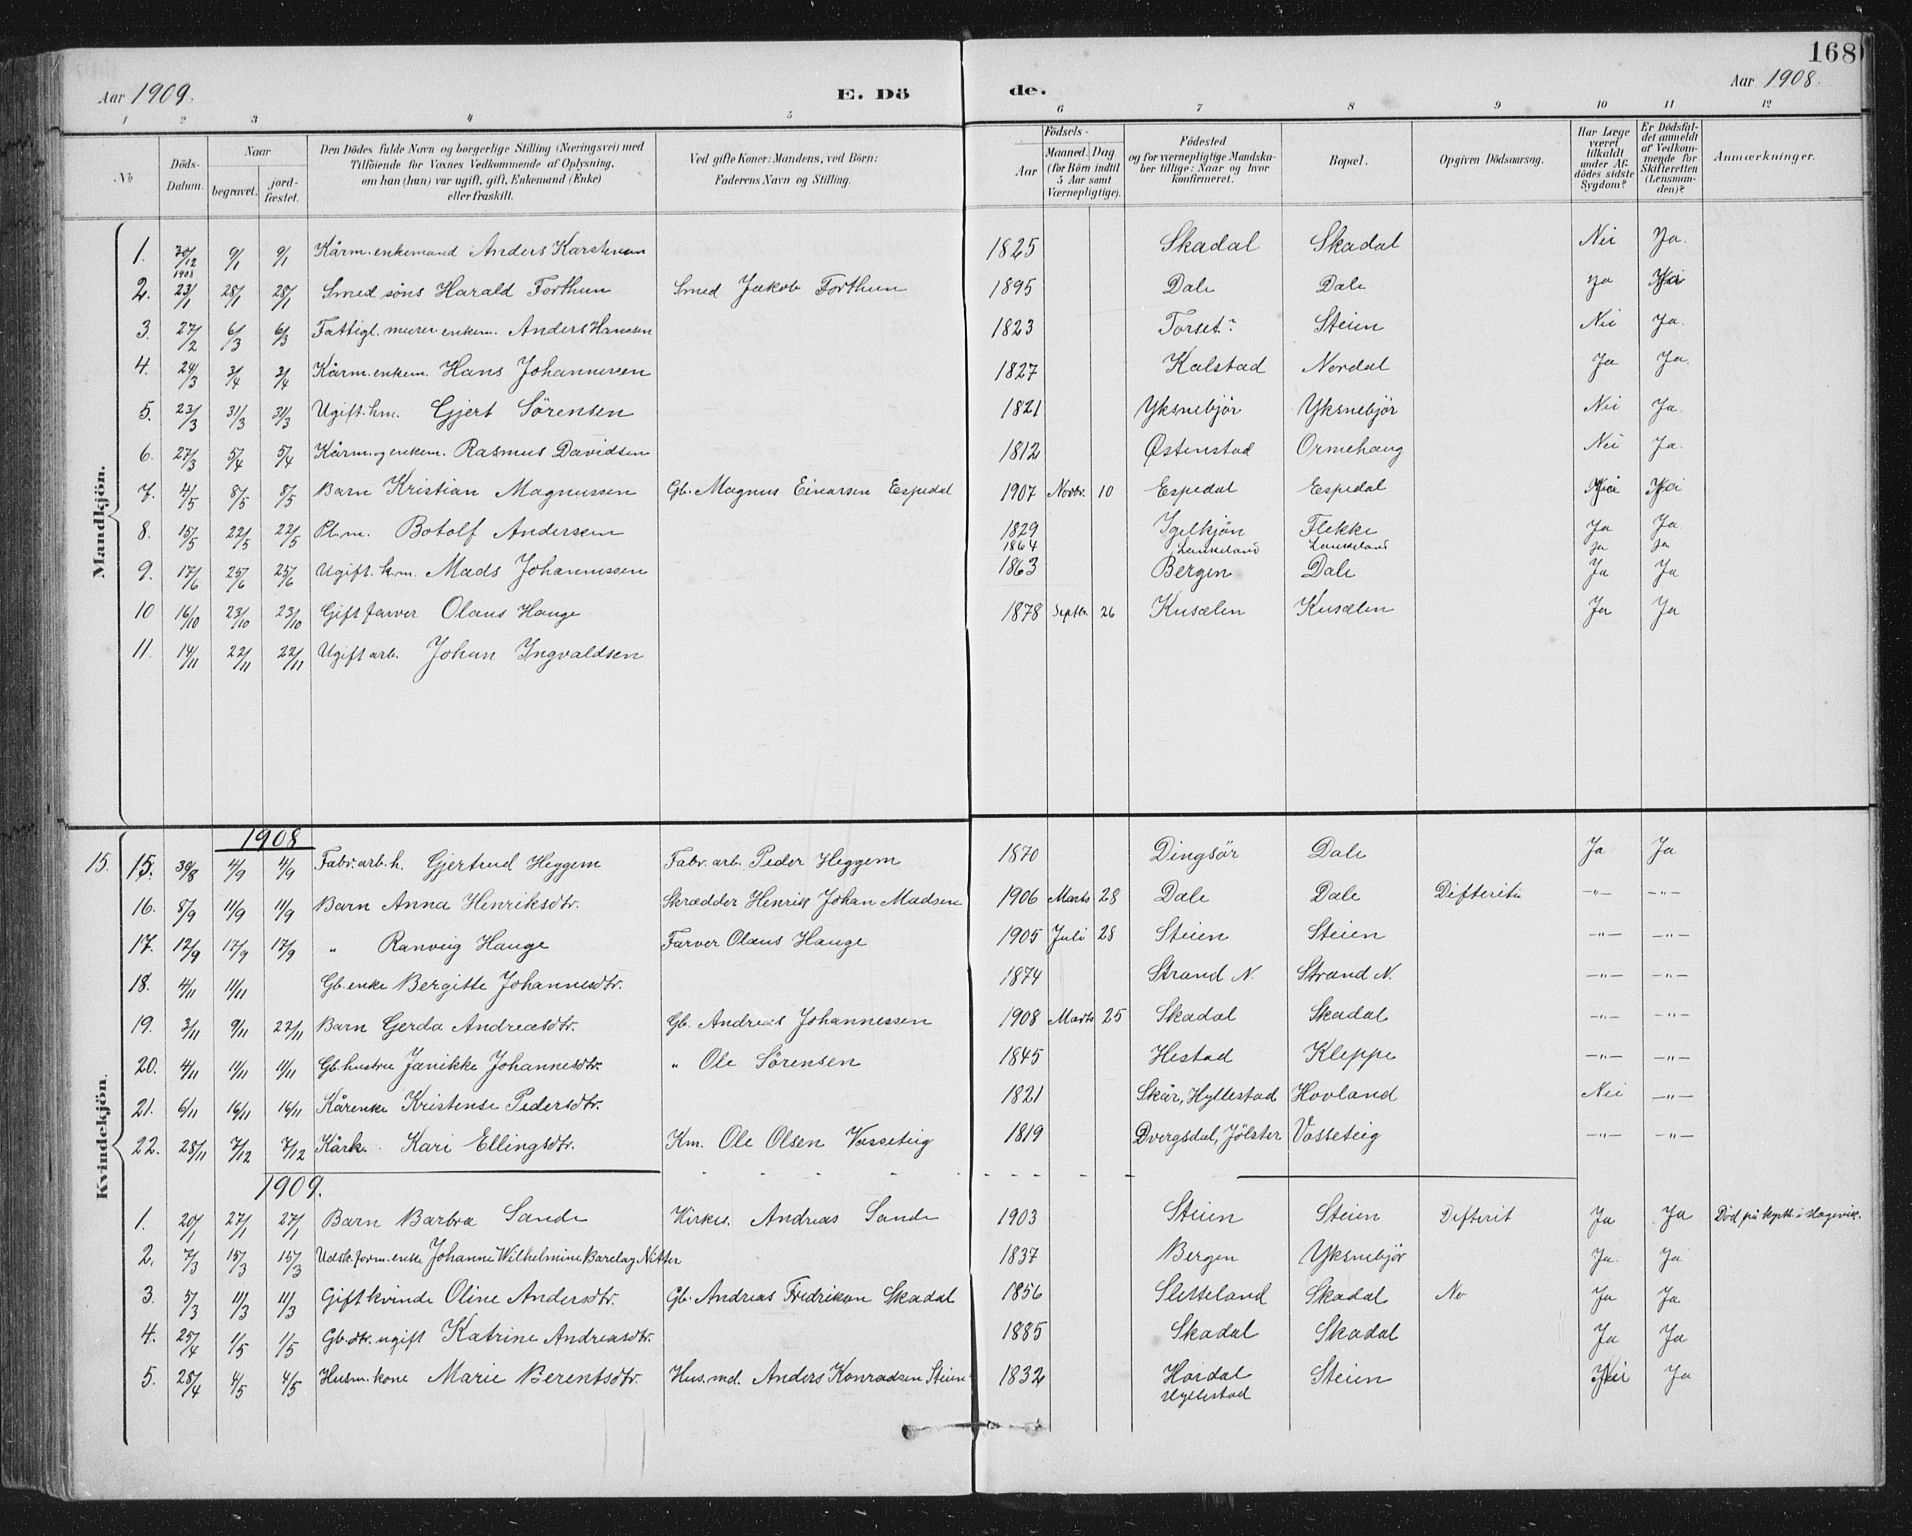 168
Aar 1909.
E. Dö
de.
Aar 1908.
1 2 3 4 5 6 7 8 9 10 11 12
No
Döds-Datum.
Naar
begravet.
jord-fæstet.
Den Dödes fulde Navn og borgerlige Stilling (Næringsvei) med
Tilföiende for Voxnes Vedkommende af Oplysning,
om han (hun) var ugift, gift, Enkemand (Enke)
eller fraskilt.
Ved gifte Koner: Mandens, ved Börn:
Faderens Navn og Stilling.
Födsels-
Aar
Maaned. Dag
(for Börn indtil
5 Aar samt
Værnepligtige).
Födested
og for værnepligtige Mandska-
ber tillige: Naar og hvor
konfirmeret.
Bopæl.
Opgiven Dödsaarsag.
Har Læge
været
tilkaldt
under Af-
dödes sidste
Sygdom?
Er Dödsfal-
det anmeldt
af Vedkom-
mende for
Skifteretten
(Lensman-
den)?
Anmærkninger.
Mandkjön.
1. 30/12 1908 9/1 9/1 Kårm. enkemand Anders Karstensen 1825 Skadal Skadal Nei Ja.
2. 23/1 28/1 28/1 Smed søns Harald Forthun Smed Jakob Forthun 1895 Dale Dale Ja
3. 27/2 6/3 6/3 Fattigl. murer enkem. Anders Hanssen 1823 Torset? Steien Nei Ja.
4. 24/3 3/4 3/4 Kårm. enkem. Hans Johannessen 1827 Kalstad Nordal Ja Ja.
5. 23/3 31/3 31/3 Ugift. hm. Gjert Sörensen 1821 Yksnebjör Yksnebjör Nei Ja.
6. 27/3 5/4 5/4 Kårm. og enkem. Rasmus Davidsen 1812 Østenstad Ormehaug Nei Ja.
7. 4/5 8/5 8/5 Barn Kristian Magnussen Gb. Magnus Einarsen Espedal 1907 Novbr. 10 Espedal Espedal
8. 15/5 22/5 22/5 Pl.m. Botolf Andersen 1829 Igelkjön Flekke Ja Ja
1864 Laukeland Laukeland Ja Ja
9. 17/6 25/6 25/6 Ugift. k.m. Mads Johannessen 1863 Bergen Dale Ja Ja
10 16/10 23/10 23/10 Gift farver Olaus Hauge 1878 Septbr. 26 Kusælen Kusælen Ja Ja
11. 14/11 22/11 22/11 Ugift arb. Johan Ingvaldsen
Kvindekjön.
1908
15. 15. 30/8 4/9 4/9 Fabr. arb. h. Gjertrud Heggem Fabr. arb. Peder Heggem 1870 Dingsör Dale Ja Ja
16. 8/9 11/9 11/9 Barn Anna Henriksdtr. Skrædder Henrik Johan Madsen 1906 Marts 28 Dale Dale Difteriti -"- -"-
17. 12/9 17/9 17/9 " Ranveig Hauge Farver Olaus Hauge 1905 Juli 28 Steien Steien -"- -"-
18. 4/11 11/11 Gb. enke Bergitte Johannesdtr. 1874 Strand N. Strand N. -"- -"-
19. 3/11 9/11 22/11 Barn Gerda Andreasdtr. Gb. Andreas Johannessen 1908 Marts 25 Skadal Skadal -"- -"-
20. 4/11 11/11 11/11 Gb. hustru Janikke Johannesdtr. " Ole Sörensen 1845 Hestad Kleppe -"- -"-
21. 6/11 16/11 16/11 Kårenke Kristense Pedersdtr. 1821 Skår, Hyllestad Hovland Nei -"-
22. 28/11 7/12 7/12 Kårk. Kari Ellingsdtr. Km. Ole Olsen Vasseteig 1819 Dvergsdal, Jölster Vasseteig -"- -"-
1909.
1. 20/1 27/1 27/1 Barn Barbra Sande Kirkes. Andreas Sande 1903 Steien Steien Difterit Ja Ja Död på
2. 7/3 15/3 15/3 Udsk. form. enke Johanne Wilhelmine Barclay Nitter 1837 Bergen Yksnebjör Ja. Ja
3. 5/3 11/3 11/3 Gift kvinde Oline Andersdtr. Gb. Andreas Fredrikson Skadal 1856 Sletteland Skadal No Ja Ja
4. 25/4 1/5 1/5 Gb. dtr. ugift Katrine Andreasdtr. 1885 Skadal Skadal Ja Ja
5. 28/4 4/5 4/5 Husm. kone Marie Berentsdtr. Hus. md. Anders Konradsen Steien 1832 Hovdal Steien Ja
Hyllestad